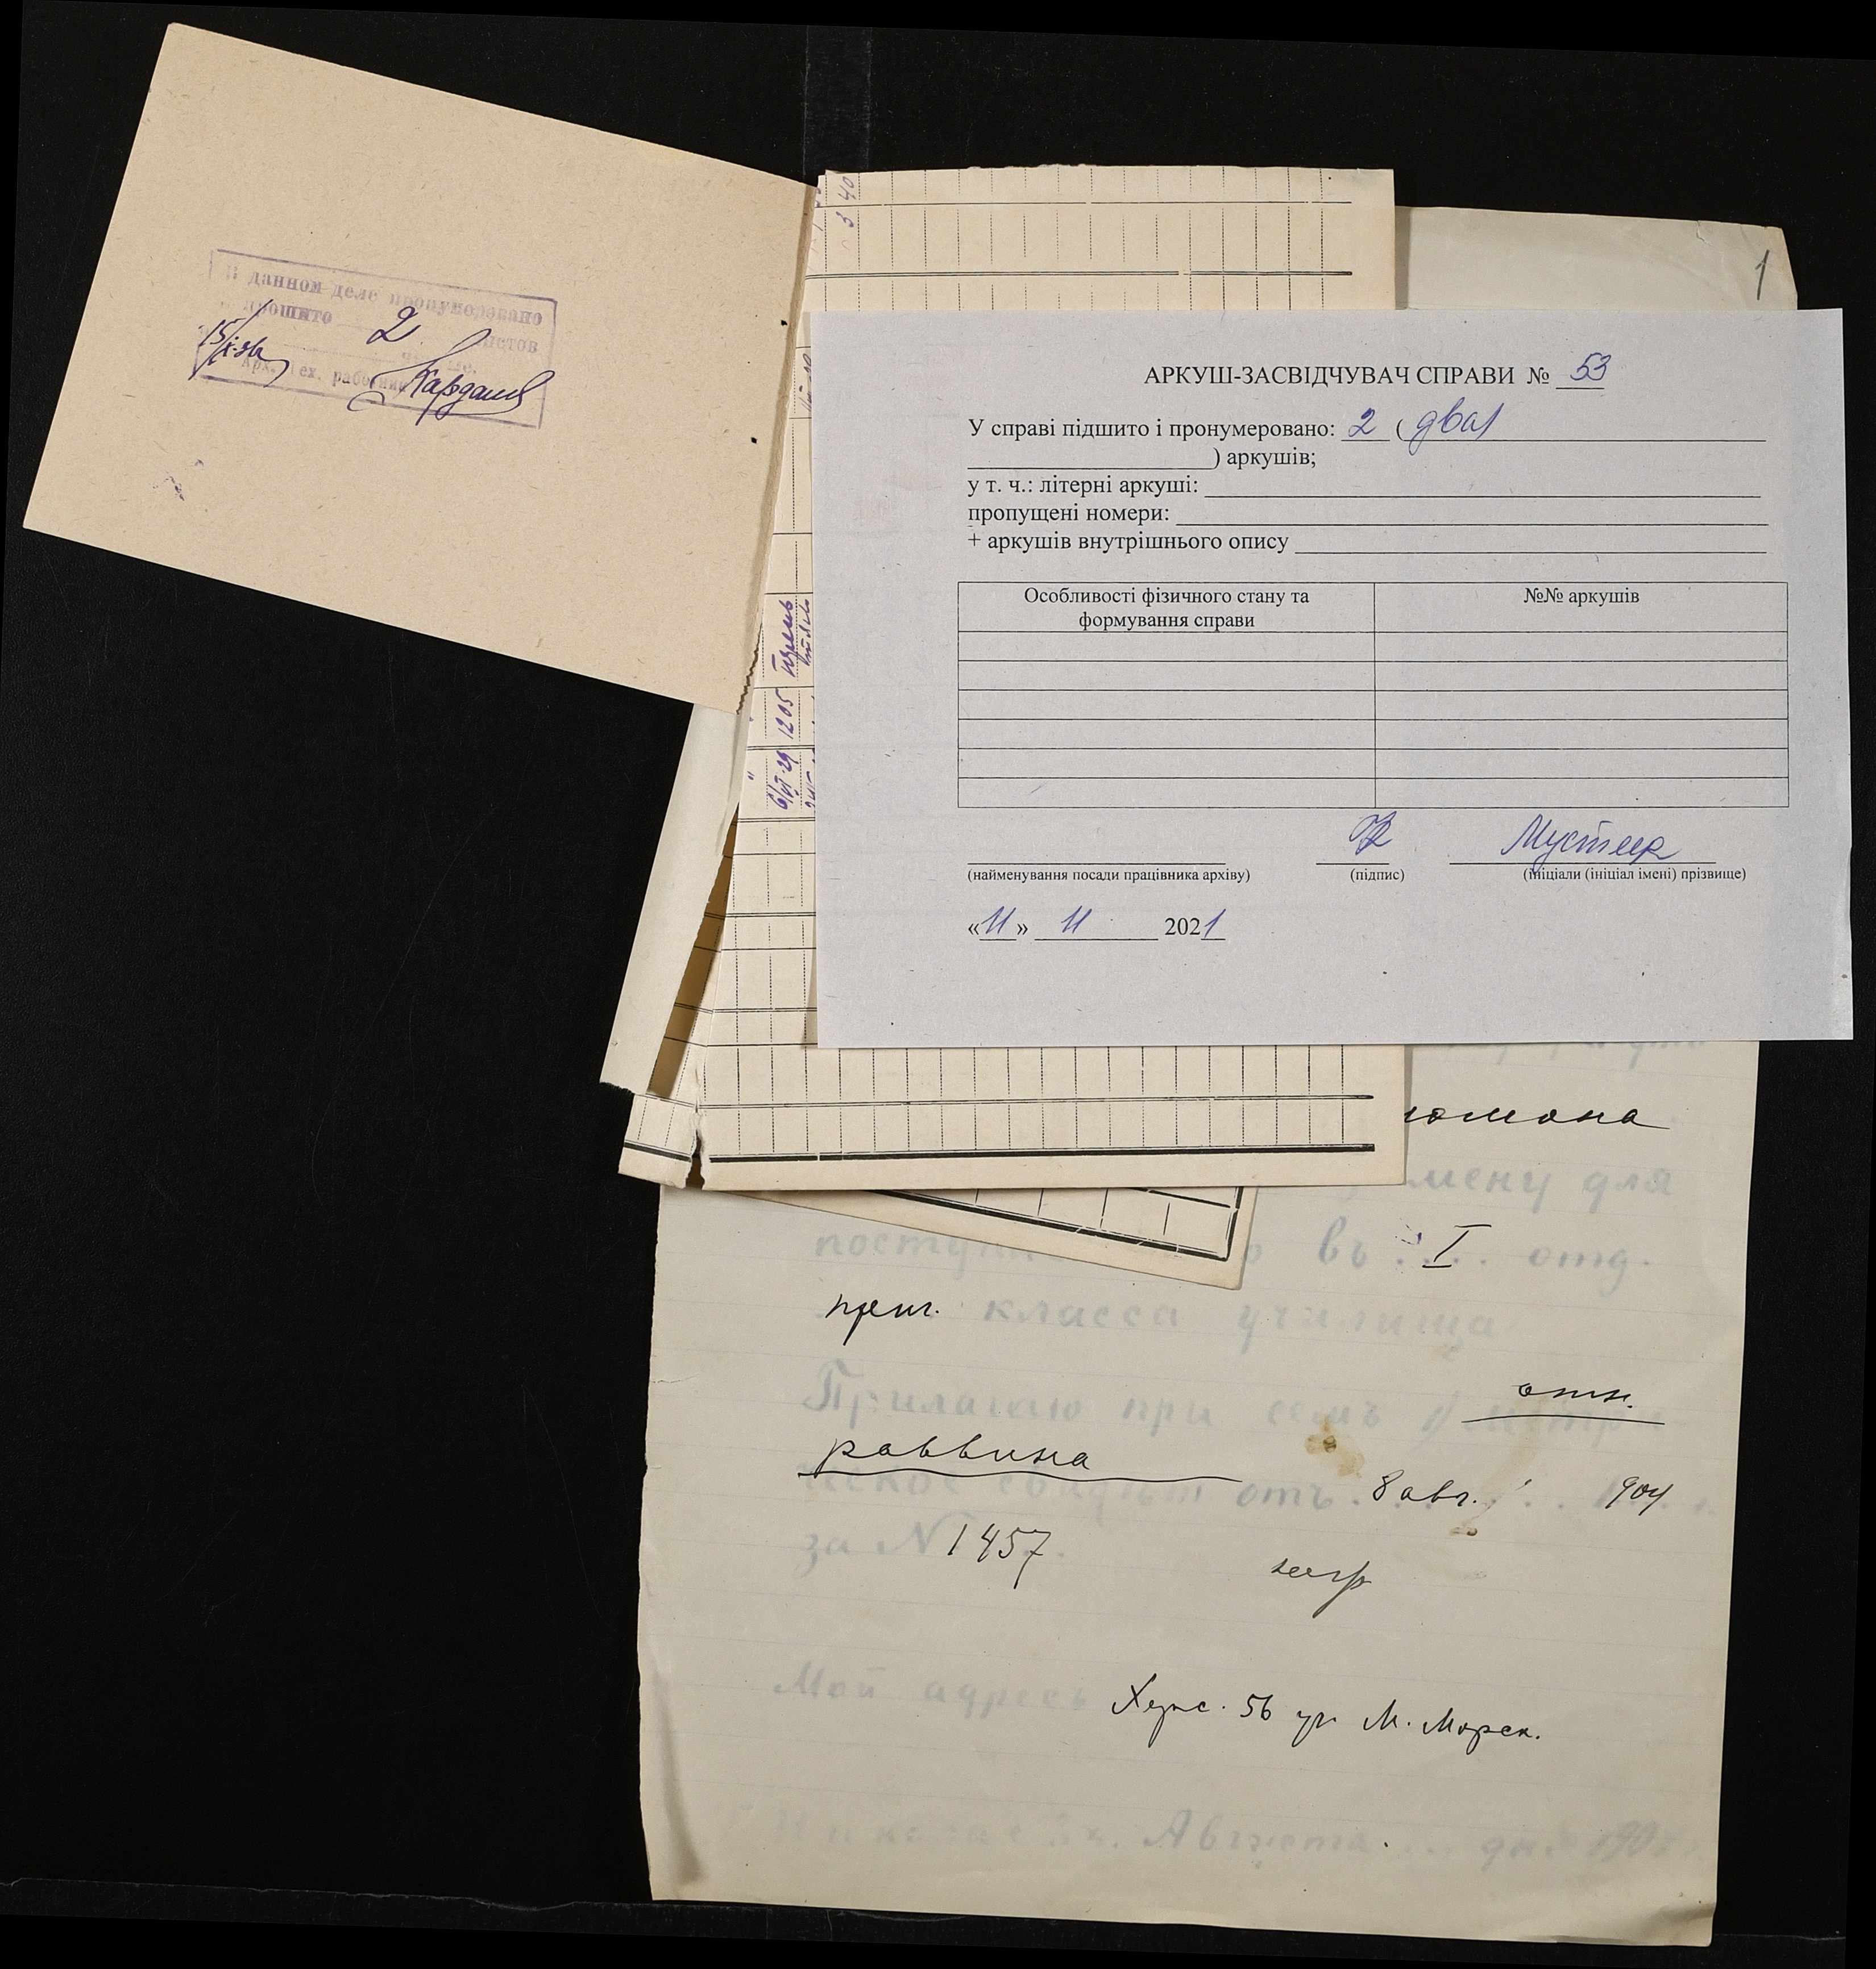 В данном деле пронумеровано
и прошито 2 листов
Арх. тех. работник
1
АРКУШ-ЗАСВІДЧУВАЧ СПРАВИ № 53
У справі підшито і пронумеровано: 2 ( два
) аркушів;
у т. ч.: літерні аркуші:
пропущені номери:
+ аркушів внутрішнього опису
Особливості фізичного стану та
формування справи
№№ аркушів
(найменування посади працівника архіву)
(підпис)
(ініціали (ініціал імені) прізвище)
«11» 11 2021
3 40
6/VI-29 1205
ломона
мену для
въ .... I отд.
класса училища
Прилагаю при семъ 1) метри-
отн.
раввина
ческое свидѣт отъ 8 авг. 904
за № 1457
Мой адресъ Херс. 56 уг. М. Морск.
Николаевъ. Августа ... дня 190